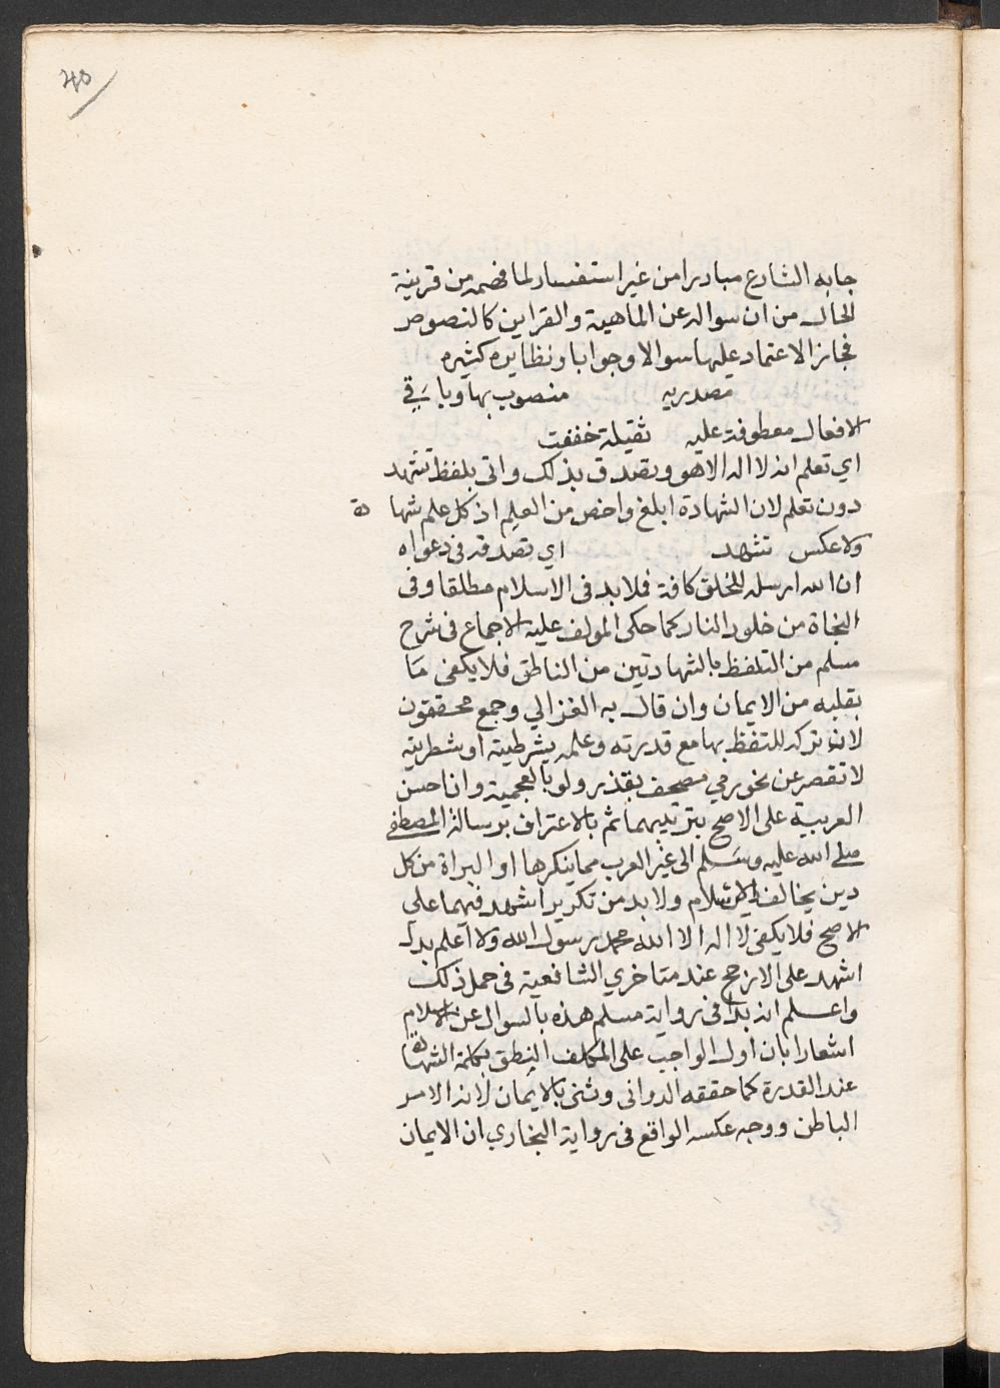 40
جابه الشارع مبادرا من غير استفسار لما فهمه من قرينة
الحال من ان سواله عن الماهية والقراين كالنصوص
فجاز الاعتماد عليها سوالا وجوابا ونظايره كثيره
مصدريه منصوب بها وباقي
الافعال معطوفة عليه ثقيلة خففت
اي تعلم انه لا اله الا هو وتصدق بذلك واتى بلفظ تشهد
دون تعلم لان الشهادة ابلغ واخص من العلم اذ كل علم شهادة
ولا عكس تشهد اي تصدقه في دعواه
ان الله ارسله للخلق كافة فلا بد في الاسلام مطلقا وفي
النجاة من خلود النار كما حكى المولف عليه الاجماع في شرح
مسلم من التلفظ بالشهادتين من الناطق فلا يكفي ما
بقلبه من الايمان وان قال به الغزالي وجمع محققون
لان تركه للتفظ بها مع قدرته وعلمه بشرطيته او شطريته
لا تقصر عن نحو رمي مصحف بقذر ولو بالعجمية وان احسن
العربية على الاصح بترتيبهما ثم بالاعتراف برسالة المصطفى
صلى الله عليه وسلم الى غير العرب مما ينكرها او البراة من كل
دين يخالف الاسلام ولا بد من تكرير اشهد فيهما على
الاصح فلا يكفي لا اله الا الله محمد رسول الله ولا اعلم بدل
اشهد على الارجح عند متاخري الشافعية في حمل ذلك
واعلم انه بدا في رواية مسلم هذه بالسوال عن الاسلام
اشعارا بان اول الواجب على المكلف النطق بكلمة الشهادة
عند القدرة كما حققه الدواني وثنى بالايمان لانه الامر
الباطن ووجه عكسه الواقع في رواية البخاري ان الايمان